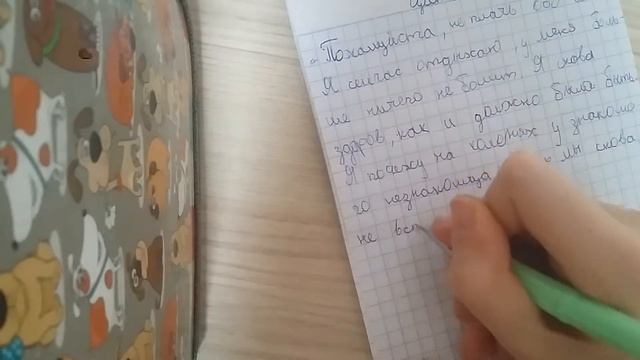 Пожалуйста, не плачь
Я сейчас отдыхаю, у меня боль-
ше ничего не болит. Я снова
здоров, как и должно было быть
Я полежу на коленях у знакомо
го незнакомца мы снова
не вст